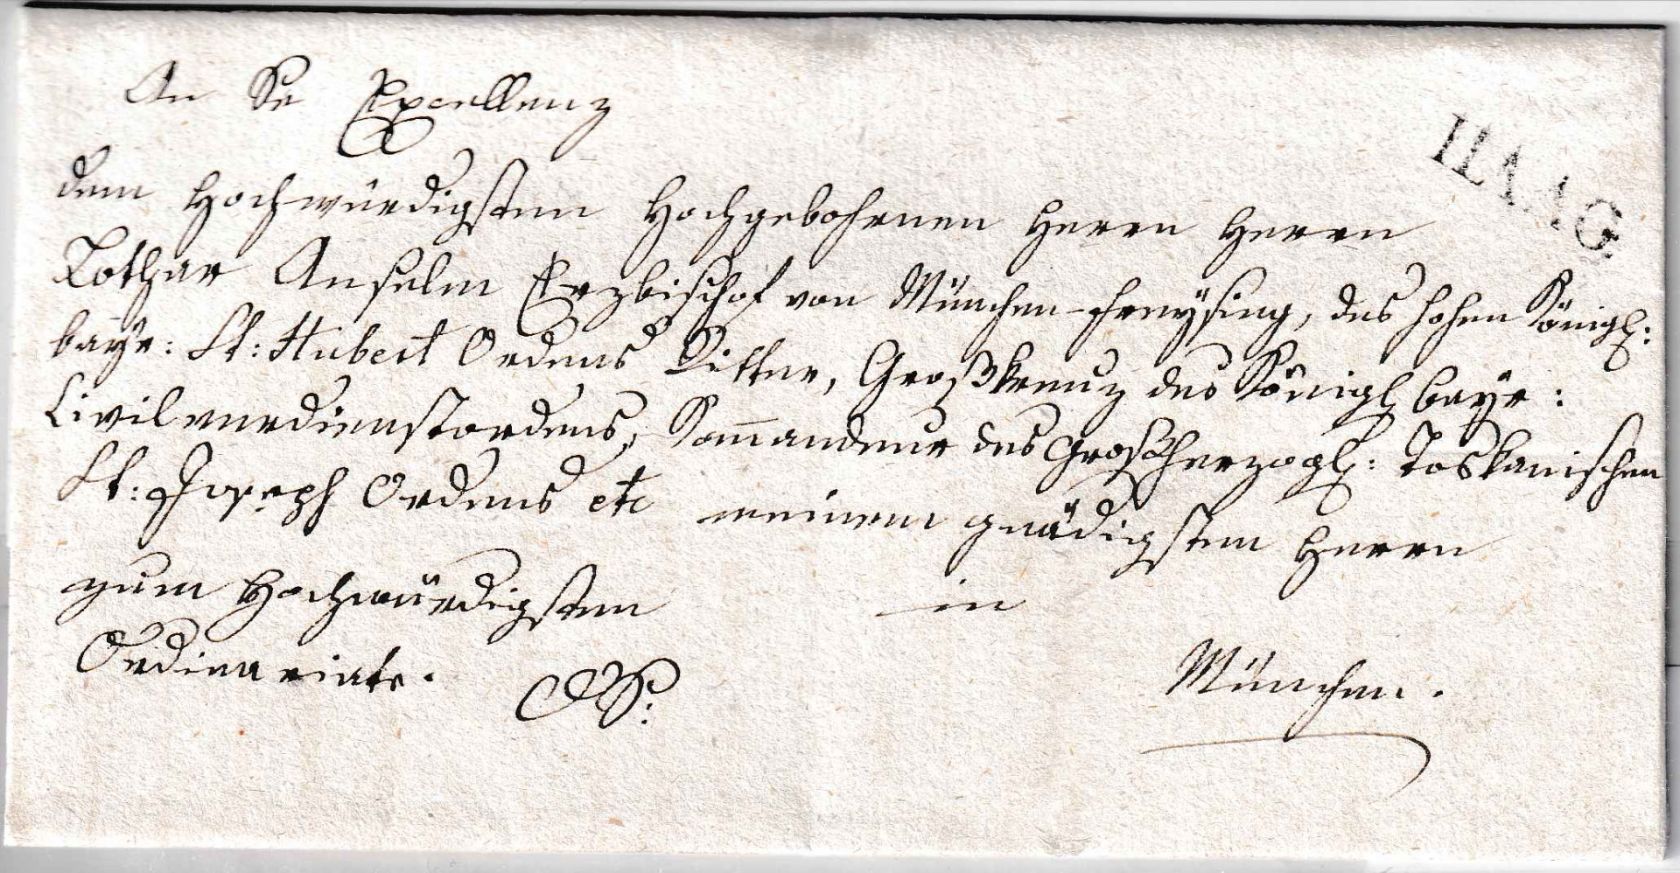 An Se Excellenz
HAAG
dem Hochwürdigsten Hochgebohrnen Herrn Herrn
Lothar Anselm Erzbischof von München-Freysing, des hohen Königl:
bayr: St: Hubert Ordens Ritter, Großkreuz des Königl bayr:
Civilverdienstordens, Kommandeur des Großherzogl: Toskanischen
St: Joseph Ordens etc meinem gnädigsten Herrn
zum Hochwürdigsten
in
Ordinariate.
München.